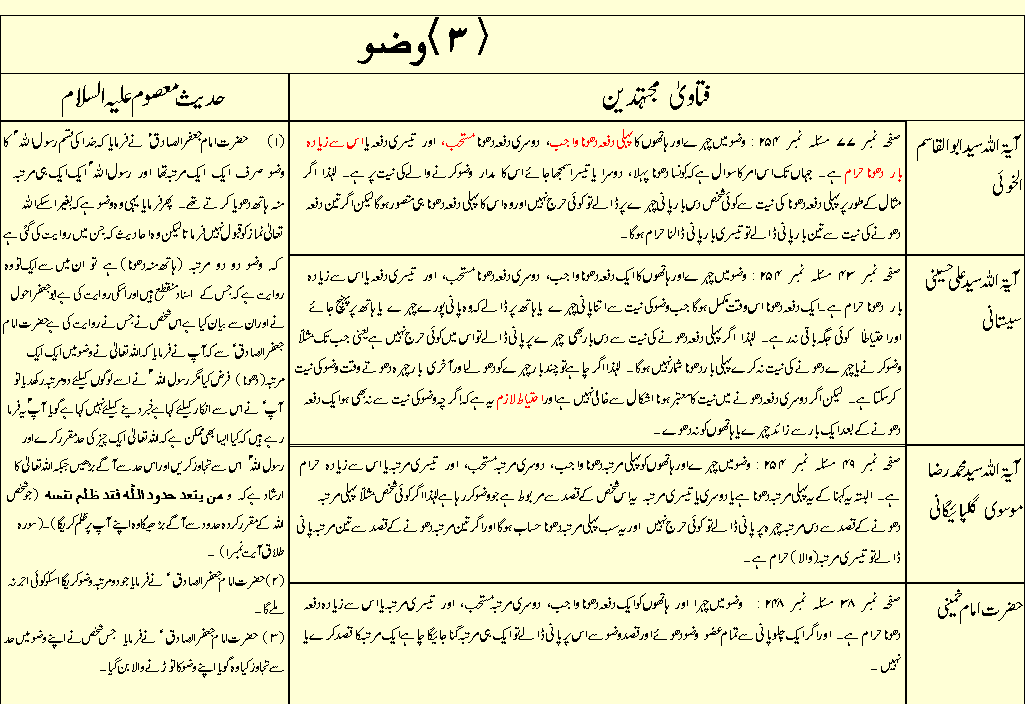 (۳) وضو
فتاویٰ مجتہدین
حدیث معصوم علیہ السلام
آیۃ اللہ سید ابوالقاسم
الخوئی
صفحہ نمبر ۷۷ مسئلہ نمبر ۲۵۴ : وضو میں چہرے اور ہاتھوں کا پہلی دفعہ دھونا واجب، دوسری دفعہ دھونا مستحب، اور تیسری دفعہ یا اس سے زیادہ
بار دھونا حرام ہے۔ جہاں تک اس امر کا سوال ہے کہ کونسا دھونا پہلا، دوسرا یا تیسرا سمجھا جائے اس کا مدار وضو کرنے والے کی نیت پر ہے۔ لہٰذا اگر
مثال کے طور پر پہلی دفعہ دھونا کی نیت سے کوئی شخص دس بار پانی چہرے پر ڈالے تو کوئی حرج نہیں اور وہ اس کا پہلا دفعہ دھونا ہی متصور ہوگا لیکن اگر تین دفعہ
دھونے کی نیت سے تین بار پانی ڈالے تو تیسری بار پانی ڈالنا حرام ہوگا۔
آیۃ اللہ سید علی حسینی
سیستانی
صفحہ نمبر ۴۳ مسئلہ نمبر ۲۵۴ : وضو میں چہرے اور ہاتھوں کا ایک دفعہ دھونا واجب، دوسری دفعہ دھونا مستحب، اور تیسری دفعہ یا اس سے زیادہ
بار دھونا حرام ہے۔ ایک دفعہ دھونا اس وقت مکمل ہوگا جب وضو کی نیت سے اتنا پانی چہرے یا ہاتھ پر ڈالے کہ وہ پانی پورے چہرے یا ہاتھ پر پہنچ جائے
اور احتیاطا کوئی جگہ باقی نہ رہے۔ لہٰذا اگر پہلی دفعہ دھونے کی نیت سے دس بار بھی چہرے پر پانی ڈالے تو اس میں کوئی حرج نہیں ہے یعنی جب تک مثلاً
وضو کرنے یا چہرے دھونے کی نیت نہ کرے پہلی بار دھونا شمار نہیں ہوگا۔ لہٰذا اگر چاہے تو چند بار چہرے کو دھولے اور آخری بار چہرہ دھوتے وقت وضو کی نیت
کرسکتا ہے۔ لیکن اگر دوسری دفعہ دھونے میں نیت کا معتبر ہونا اشکال سے خالی نہیں ہے اور احتیاط لازم یہ ہے کہ اگر چہ وضو کی نیت سے نہ بھی ہو ایک دفعہ
دھونے کے بعد ایک بار سے زائد چہرے یا ہاتھوں کو نہ دھوے۔
آیۃ اللہ سید محمد رضا
موسوی گلپائیگانی
صفحہ نمبر ۴۹ مسئلہ نمبر ۲۵۴ : وضو میں چہرے اور ہاتھوں کو پہلی مرتبہ دھونا واجب، دوسری مرتبہ مستحب، اور تیسری مرتبہ یا اس سے زیادہ حرام
ہے۔ البتہ یہ کہنا کے یہ پہلی مرتبہ دھونا ہے یا دوسری یا تیسری مرتبہ یہ اس شخص کے قصد سے مربوط ہے جو وضو کر رہا ہے لہٰذا اگر کوئی شخص مثلاً پہلی مرتبہ
دھونے کے قصد سے دس مرتبہ چہرہ پر پانی ڈالے تو کوئی حرج نہیں اور یہ سب پہلی مرتبہ دھونا حساب ہوگا اور اگر تین مرتبہ دھونے کے قصد سے تین مرتبہ پانی
ڈالے تو تیسری مرتبہ (والا) حرام ہے۔
حضرت امام خمینی
صفحہ نمبر ۳۸ مسئلہ نمبر ۲۴۸ : وضو میں چہرا اور ہاتھوں کو ایک دفعہ دھونا واجب، دوسری مرتبہ مستحب، اور تیسری مرتبہ یا اس سے زیادہ دفعہ
دھونا حرام ہے۔ اور اگر ایک چلو پانی سے تمام عضو وضو دھوئے اور قصد وضو سے اس پر پانی ڈالے تو ایک ہی مرتبہ گنا جائیگا چاہے ایک مرتبہ کا قصد کرے یا
نہیں۔
(۱) حضرت امام جعفر الصادق ؑ نے فرمایا کہ خدا کی قسم رسول اللہ ؐ کا
وضو صرف ایک ایک مرتبہ تھا اور رسول اللہ ؐ ایک ایک ہی مرتبہ
منہ ہاتھ دھویا کرتے تھے۔ پھر فرمایا یہی وہ وضو ہے کہ بغیر اسکے اللہ
تعالیٰ نماز کو قبول نہیں فرماتا لیکن وہ احادیث کہ جن میں روایت کی گئی ہے
کہ وضو دو دو مرتبہ (ہاتھ منہ دھونا) ہے تو ان میں سے ایک تو وہ
روایت ہے کہ جس کے اسناد منقطع ہیں اور اسکی روایت کی ہے ابو جعفر احول
نے اور ان سے بیان کیا ہے اس شخص نے جس نے روایت کی ہے حضرت امام
جعفر الصادق ؑ سے کہ آپ نے فرمایا کہ اللہ تعالیٰ نے وضو میں ایک ایک
مرتبہ (دھونا) فرض کیا مگر رسول اللہ ؐ نے اسے لوگوں کیلئے دو مرتبہ رکھدیا تو
آپ ؑ نے اس سے انکار کیلئے کہا ہے خبر دینے کیلئے نہیں کہا ہے گویا آپ ؑ یہ فرما
رہے ہیں کہ کیا ایسا بھی ممکن ہے کہ اللہ تعالیٰ ایک چیز کی حد مقرر کرے اور
رسول اللہ ؐ اس سے تجاوز کریں اور اس حد سے آگے بڑھیں جبکہ اللہ تعالیٰ کا
ارشاد ہے کہ و من یتعد حدود اللّٰہ فقد ظلم نفسہ (جو شخص
اللہ کے مقرر کردہ حدود سے آگے بڑھیگا وہ اپنے آپ پر ظلم کریگا)۔ (سورہ
طلاق آیت نمبر ۱)۔
(۲) حضرت امام جعفر الصادق ؑ نے فرمایا جو دو مرتبہ وضو کریگا اسکو کوئی اجر نہ
ملے گا۔
(۳) حضرت امام جعفر الصادق ؑ نے فرمایا جس شخص نے اپنے وضو میں حد
سے تجاوز کیا وہ گویا اپنے وضو کا توڑنے والا بن گیا۔